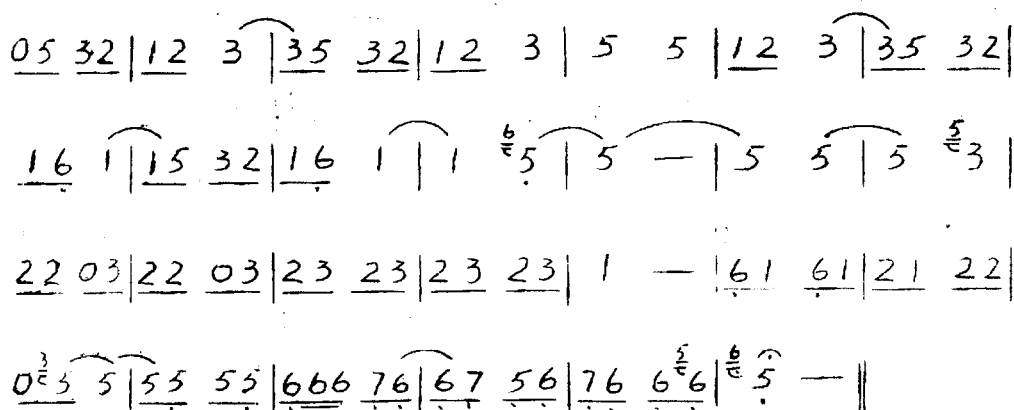 05 32 | 12 3 | 35 32 | 12 3 | 5 5 | 12 3 | 35 32 |
16 1 | 15 32 | 16 1 | 1 6 5 | 5 — | 5 5 | 5 5 3 |
22 03 | 22 03 | 23 23 | 23 23 | 1 — | 61 61 | 21 22 |
0 3 5 5 | 55 55 | 666 76 | 67 56 | 76 6 5 6 | 6 5 — ‖